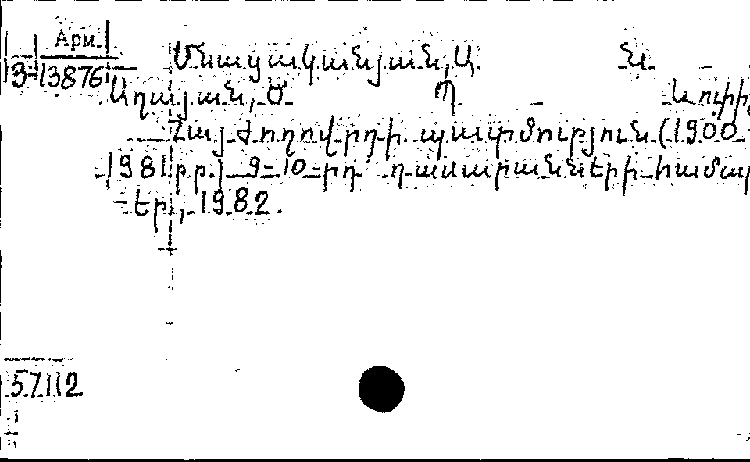 Арм.
3-13876 Մնացականյան, Ա Ն
Աղայան, Ծ Պ
Հայ ժողովրդի պատմություն (1900
1981 թթ.) 9-10-րդ դասարանների համար
Եր., 1982.
57112